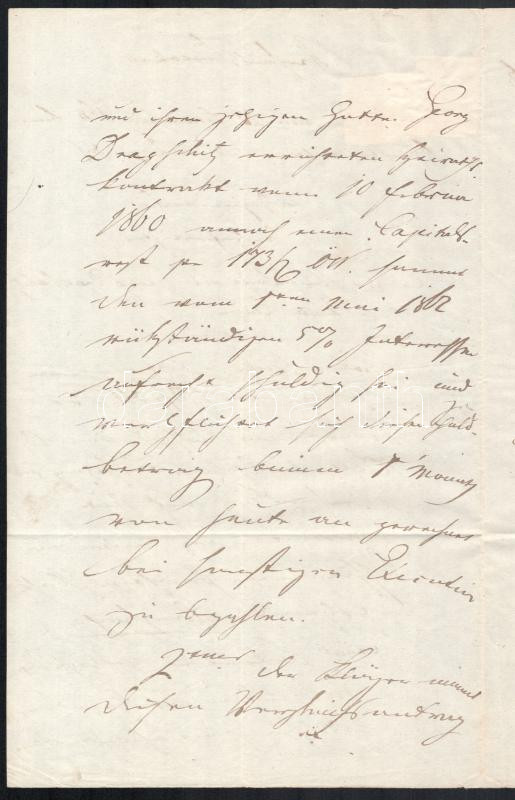 und ihrem jetzigen Gatten Georg
Dragschitz errichteten Heiraths
kontrakt vom 10 Februar
1860 annoch einen Capitals-
rest pr 173 f ÖW. sammt
den vom 1ten Mai 1862
rükständigen 5% Interessen
aufrecht schuldig sei und
verpflichtet sich diesen Schuld-
betrag binnen
von heute an gerechnet
bei sonstiger Execution
zu bezahlen.
der Kläger nimmt
diesen Vergleichsantrag